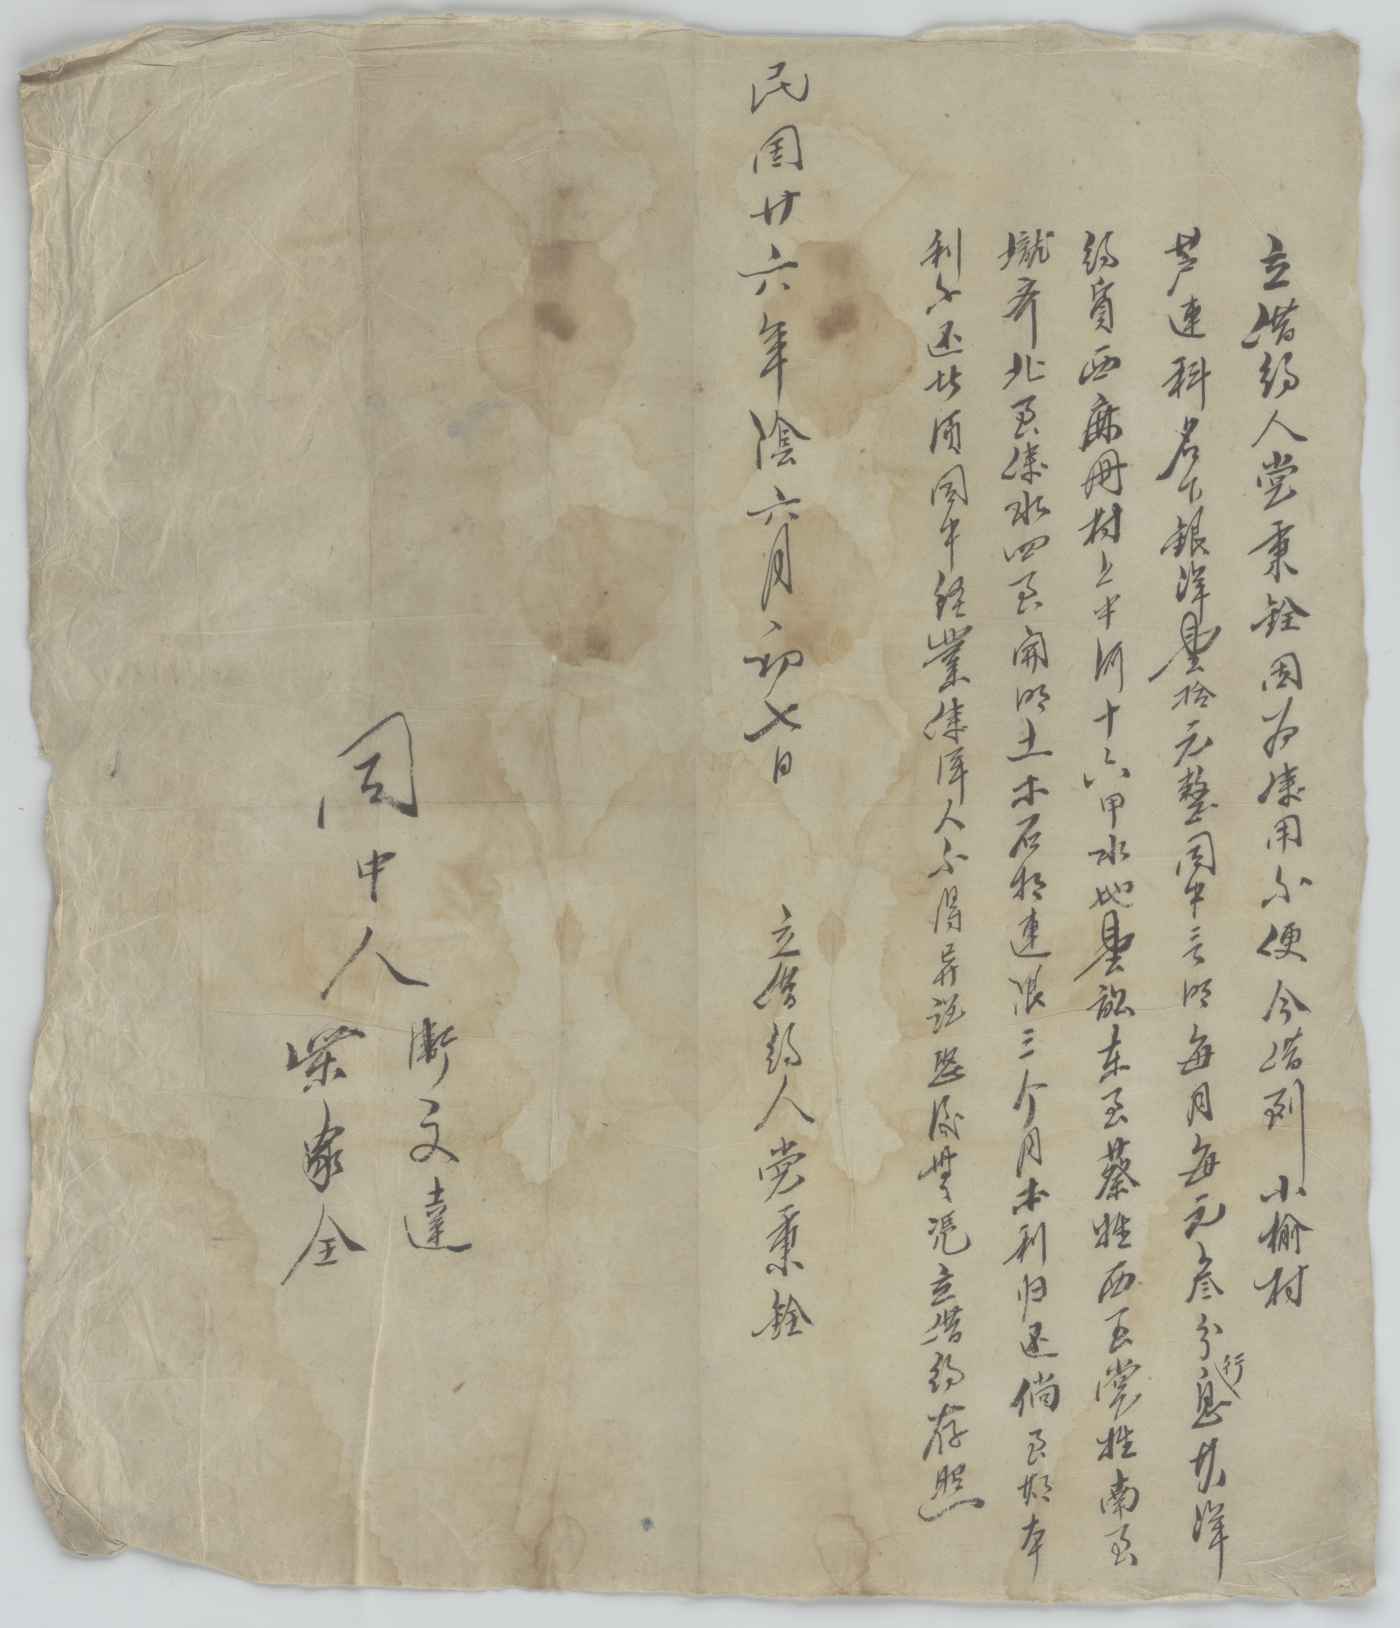 立借约人党秉銓因为使用不便今借到小榆村
芦連科名下銀洋壹拾元整同中言明每月每元叁分行息其洋
约實西麻冊村上半河十六甲水地壹訟东至蔡姓西至党姓南至
壠齐北至使水四至開明土木石相連限三个月本利归还倘至期本
利不还此須同中经業使洋人不得异说恐後無凭立借约存照
民国廿六年陰六月初七日
立借约人党秉銓
同中人
衛文達
柴家全